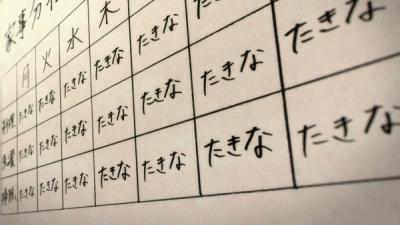 家事分
月 火 水 木
料理 たきな たきな たきな たきな たきな たきな
洗濯 たきな たきな たきな たきな たきな たきな たきな
掃除 たきな たきな たきな たきな たきな たきな たきな